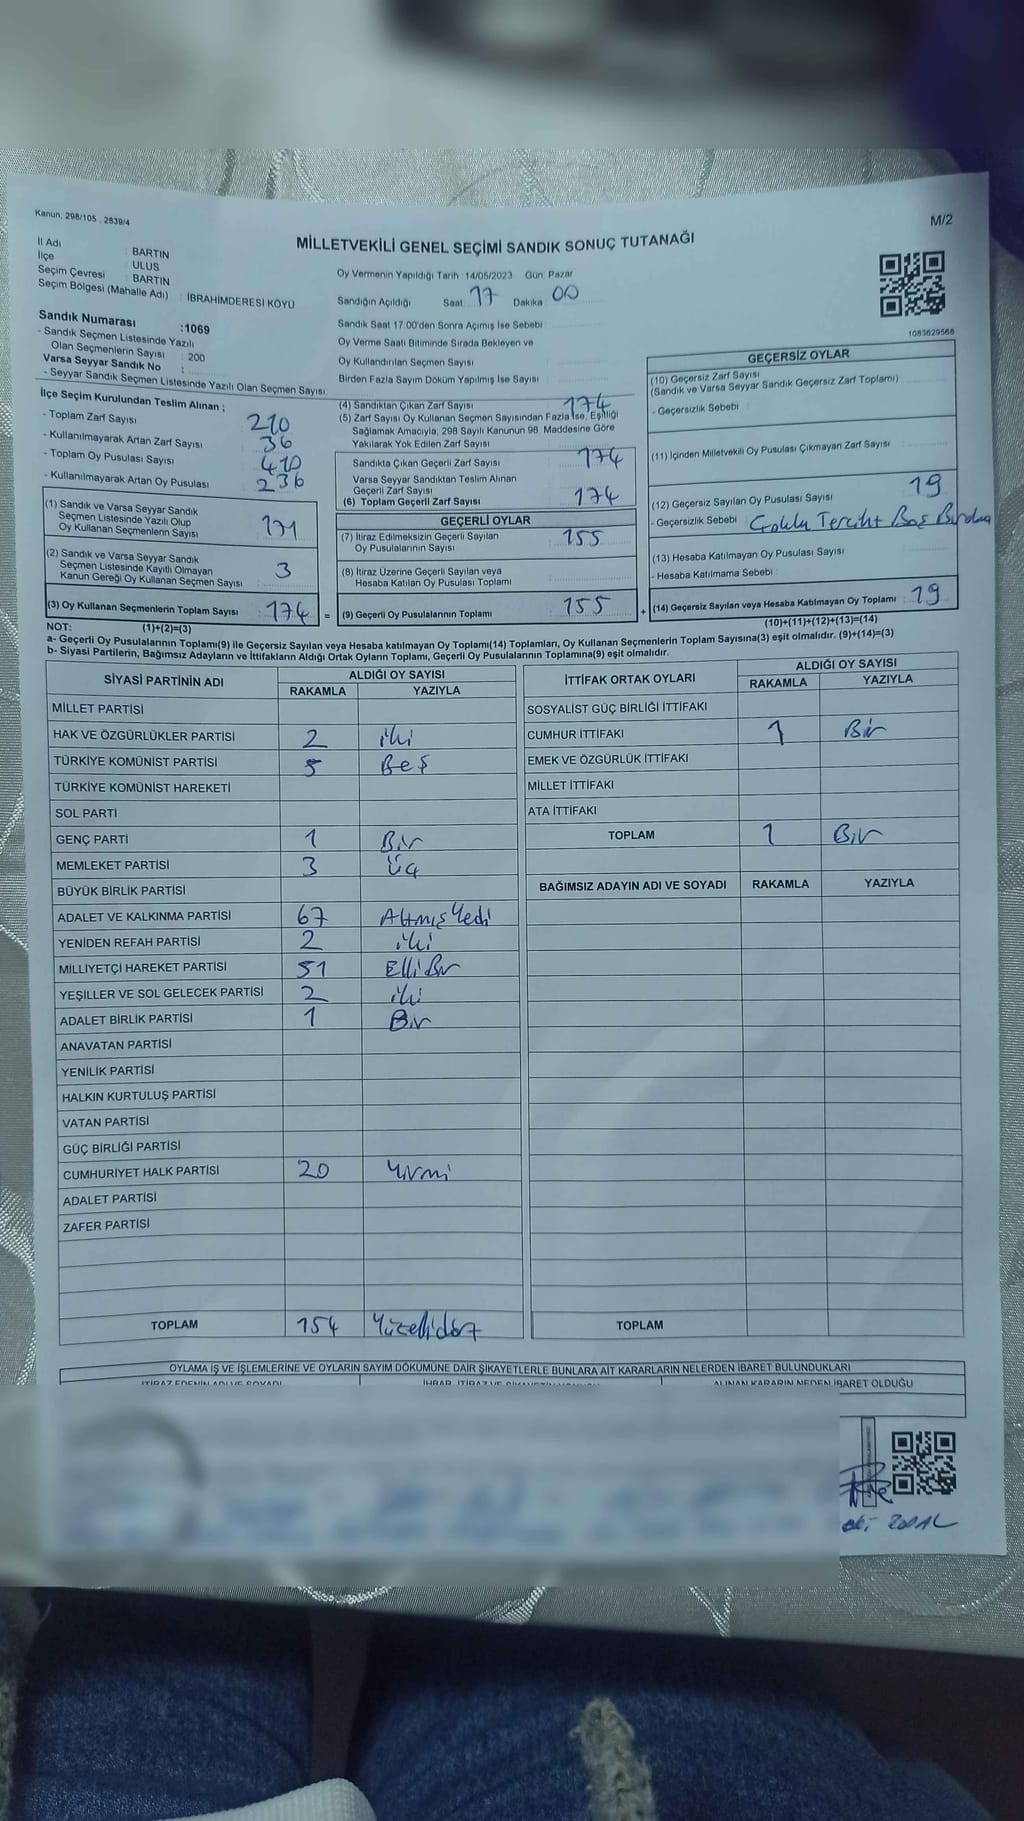 Kanun, 298/105 . 2839/4
M/2
MİLLETVEKİLİ GENEL SEÇİMİ SANDIK SONUÇ TUTANAĞI
İl Adı : BARTIN
İlçe : ULUS
Seçim Çevresi : BARTIN
Seçim Bölgesi (Mahalle Adı) : İBRAHİMDERESİ KÖYÜ
Oy Vermenin Yapıldığı Tarih :14/05/2023 Gün: Pazar
Sandığın Açıldığı Saat 17 Dakika 00
Sandık Saat 17.00'den Sonra Açımış İse Sebebi
Oy Verme Saati Bitiminde Sırada Bekleyen ve
Oy Kullandırılan Seçmen Sayısı
Birden Fazla Sayım Döküm Yapılmış İse Sayısı
1083629568
Sandık Numarası :1069
- Sandık Seçmen Listesinde Yazılı
Olan Seçmenlerin Sayısı : 200
Varsa Seyyar Sandık No :
- Seyyar Sandık Seçmen Listesinde Yazılı Olan Seçmen Sayısı
İlçe Seçim Kurulundan Teslim Alınan ;
- Toplam Zarf Sayısı 210
- Kullanılmayarak Artan Zarf Sayısı 36
- Toplam Oy Pusulası Sayısı 410
- Kullanılmayarak Artan Oy Pusulası 236
(1) Sandık ve Varsa Seyyar Sandık
Seçmen Listesinde Yazılı Olup
Oy Kullanan Seçmenlerin Sayısı 171
(2) Sandık ve Varsa Seyyar Sandık
Seçmen Listesinde Kayıtlı Olmayan
Kanun Gereği Oy Kullanan Seçmen Sayısı 3
(3) Oy Kullanan Seçmenlerin Toplam Sayısı 174 =
(4) Sandıktan Çıkan Zarf Sayısı 174
(5) Zarf Sayısı Oy Kullanan Seçmen Sayısından Fazla İse, Eşitliği
Sağlamak Amacıyla, 298 Sayılı Kanunun 98. Maddesine Göre
Yakılarak Yok Edilen Zarf Sayısı
Sandıkta Çıkan Geçerli Zarf Sayısı 174
Varsa Seyyar Sandıktan Teslim Alınan
Geçerli Zarf Sayısı
(6) Toplam Geçerli Zarf Sayısı 174
GEÇERLİ OYLAR
(7) İtiraz Edilmeksizin Geçerli Sayılan
Oy Pusulalarının Sayısı 155
(8) İtiraz Üzerine Geçerli Sayılan veya
Hesaba Katılan Oy Pusulası Toplamı
(9) Geçerli Oy Pusulalarının Toplamı 155 +
GEÇERSİZ OYLAR
(10) Geçersiz Zarf Sayısı
(Sandık ve Varsa Seyyar Sandık Geçersiz Zarf Toplamı)
- Geçersizlik Sebebi
(11) İçinden Milletvekili Oy Pusulası Çıkmayan Zarf Sayısı
(12) Geçersiz Sayılan Oy Pusulası Sayısı 19
- Geçersizlik Sebebi Çoklu Tercih Boş
(13) Hesaba Katılmayan Oy Pusulası Sayısı
- Hesaba Katılmama Sebebi
(14) Geçersiz Sayılan veya Hesaba Katılmayan Oy Toplamı 19
NOT: (1)+(2)=(3)
(10)+(11)+(12)+(13)=(14)
a- Geçerli Oy Pusulalarının Toplamı(9) ile Geçersiz Sayılan veya Hesaba katılmayan Oy Toplamı(14) Toplamları, Oy Kullanan Seçmenlerin Toplam Sayısına(3) eşit olmalıdır. (9)+(14)=(3)
b- Siyasi Partilerin, Bağımsız Adayların ve İttifakların Aldığı Ortak Oyların Toplamı, Geçerli Oy Pusulalarının Toplamına(9) eşit olmalıdır.
SİYASİ PARTİNİN ADI ALDIĞI OY SAYISI
RAKAMLA YAZIYLA
MİLLET PARTİSİ
HAK VE ÖZGÜRLÜKLER PARTİSİ 2 iki
TÜRKİYE KOMÜNİST PARTİSİ 5 Beş
TÜRKİYE KOMÜNİST HAREKETİ
SOL PARTİ
GENÇ PARTİ 1 Bir
MEMLEKET PARTİSİ 3 Üç
BÜYÜK BİRLİK PARTİSİ
ADALET VE KALKINMA PARTİSİ 67 Altmış Yedi
YENİDEN REFAH PARTİSİ 2 iki
MİLLİYETÇİ HAREKET PARTİSİ 51 Elli Bir
YEŞİLLER VE SOL GELECEK PARTİSİ 2 iki
ADALET BİRLİK PARTİSİ 1 Bir
ANAVATAN PARTİSİ
YENİLİK PARTİSİ
HALKIN KURTULUŞ PARTİSİ
VATAN PARTİSİ
GÜÇ BİRLİĞİ PARTİSİ
CUMHURİYET HALK PARTİSİ 20 Yirmi
ADALET PARTİSİ
ZAFER PARTİSİ
TOPLAM 154 Yüzellidört
İTTİFAK ORTAK OYLARI ALDIĞI OY SAYISI
RAKAMLA YAZIYLA
SOSYALİST GÜÇ BİRLİĞİ İTTİFAKI
CUMHUR İTTİFAKI 1 Bir
EMEK VE ÖZGÜRLÜK İTTİFAKI
MİLLET İTTİFAKI
ATA İTTİFAKI
TOPLAM 1 Bir
BAĞIMSIZ ADAYIN ADI VE SOYADI RAKAMLA YAZIYLA
TOPLAM
OYLAMA İŞ VE İŞLEMLERİNE VE OYLARIN SAYIM DÖKÜMÜNE DAİR ŞİKAYETLERLE BUNLARA AİT KARARLARIN NELERDEN İBARET BULUNDUKLARI
İTİRAZ EDENİN ADI VE SOYADI ALINAN KARARIN NEDEN İBARET OLDUĞU